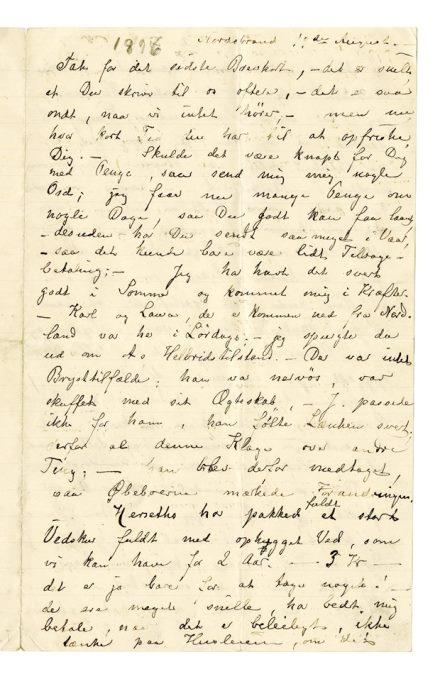 1896 Nordstrand 11 de August. -
Tak for det sidste Brevkort, - det er snilt,
at Du skriver til os oftere, - det er saa
ondt, naar vi intet hører, - men nu
hvor kort Tid Du har til at opfriske
Dig. - Skulde det være knapt for Dig
med Penge, saa send mig nogle
Ord; jeg faar nu mange Penge om
nogle Dage, saa Du godt kan faa laane
- desuden har Du sendt saa meget i Vaar,
- saa det kunde bare være lidt Tilbage-
betaling; - Jeg har havt det svært
godt i Sommer og kommet mig i Kræfter. -
- Karl og Laura, de er kommen ned fra Nord-
land var her i Lørdags; - jeg spurgte da
ud om As Helbredstilstand. - Der var intet
Brysttilfælde; han var nervøs, var
skuffet med sit Ægteskab, - J. passede
ikke for ham, han følte Lænken svert;
derfor al denne Klage over andre
Ting; - han blev derfor meget,
saa Øbeboerne mærkede Forandringen.
- Herseths har pakket et stort
Vedskur fuldt fuldt med ophugget Ved, som
vi kan have for 2 Aar. - 3 Kr -
det er jo bare for at tage noget! -
de ere meget snille, har bedt mig
betale, naar det er beleiligt, ikke
tænke paa Huslejen, om det